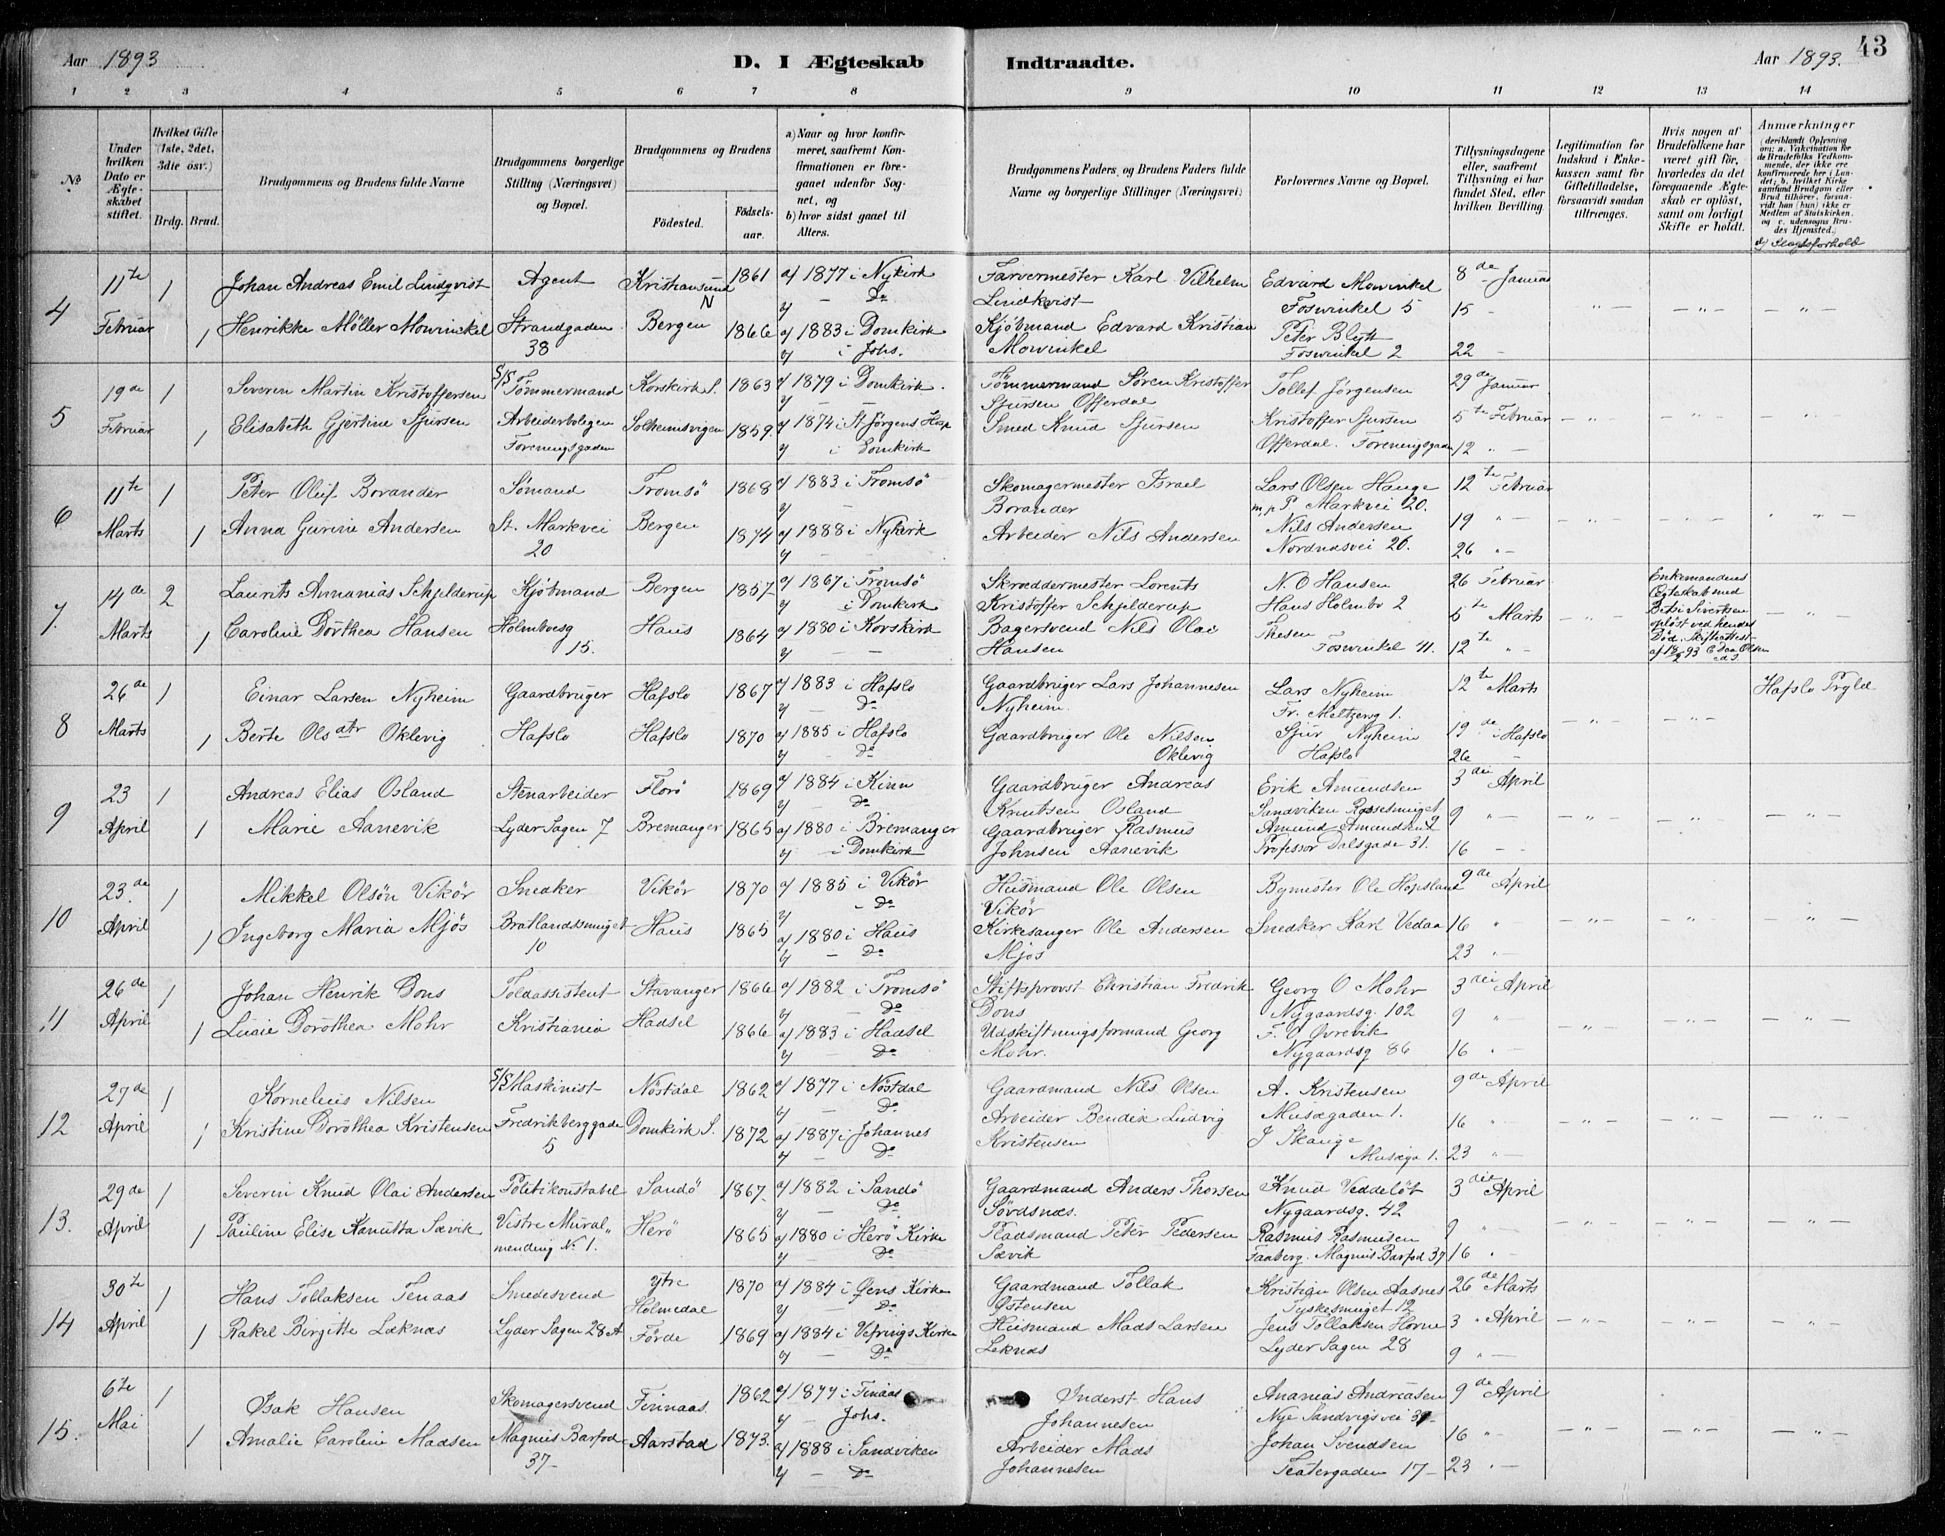 Aar 1893
D. I Ægteskab Indtraadte.
Aar 1893. 43
1 2 3 4 5 6 7 8 9 10 11 12 13 14
No
Under hvilken Dato er Ægteskabet stiftet.
Hvilket Gifte (1ste, 2det, 3die osv.)
Brdg. Brud.
Brudgommens og Brudens fulde Navne
Brudgommens borgerlige Stilling (Næringsvei) og Bopæl.
Brudgommens og Brudens
Fødested. Fødselsaar.
a) Naar og hvor konfirmeret, saafremt Konfirmationen er foregaaet udenfor Sognet, og
b) hvor sidst gaaet til Alters.
Brudgommens Faders og Brudens Faders fulde Navne og borgerlige Stillinger (Næringsvei)
Forlovernes Navne og Bopæl.
Tillysningsdagene eller, saafremt Tillysning ei har fundet Sted, efter hvilken Bevilling
Legitimation for Indskud i Enkekassen samt for Giftetilladelse, forsaavidt saadan tiltrænges.
Hvis nogen af Brudefolkene har været gift før, hvorledes da det foregaaende Ægteskab er opløst, samt om lovligt Skifte er holdt.
Anmærkninger
(deriblandt Oplysning om: a. Vakcination for de Brudefolks Vedkommende, der ikke ere konfirmerede her i Landet; b. hvilket Kirkesamfund Brudgom eller Brud tilhører, forsaavidt han (hun) ikke er Medlem af Statskirken, og c. udensogns Brudes Hjemsted.)
d) Slægtsforhold
4 11te Februar
1 Johan Andreas Emil Lindqvist Agent Kristiansund N 1861 a) 1877 i Nykirk b) — Do
Farvermester Karl Vilhelm Lindkvist
1 Henrikke Møller Mowinckel Strandgaden 38 Bergen 1866 a) 1883 i Domkirk b) i Johs.
Kjøbmand Edvard Kristian Mowinkel
Edvard Mowinkel Foswinkel 5
Peter Blytt Foswinkel 2
8de Januar 15 - 22 -
5 19de Februar
1 Severin Martin Kristoffersen S/S Tømmermand Korskirk S. 1863 a) 1879 i Domkirk. b) — —
Tømmermand Søren Kristoffer Sjursen Offerdal
1 Elisabeth Gjertine Sjursen Arbeiderboligen Foreningsgaden Solheimsvigen 1859. a) 1874 i St. Jørgens Hosp b) i Domkirk
Smed Knud Sjursen
Tollef Jørgensen
Kristoffer Sjursen Offerdal. Foreningsgaden
29de Januar 5te Februar 12 " —
6 11te Marts
1 Peter Oluf Borander Sømand Tromsö 1868 a) 1883 i Tromsö b) —
Skomagermester Israel Borander
1 Anna Gurine Andersen St. Markvei 20 Bergen 1874 a) 1888 i Nykirk b) —
Arbeider Nils Andersen
Lars Olsen Hauge m.p. P. Markvei 20.
Nils Andersen Nordnæsvei 26.
12te Februar 19 " — 26 " —
7. 14de Marts
2 Laurits Annanias Schjelderup Kjøbmand Bergen 1857 a) 1867 i Tromsö b) i Domkirk
Skræddermester Lorents Kristoffer Schjelderup
1 Caroline Dorthea Hansen Holmboeg 15. Haus 1864 a) 1880 i Korskirk b) — —
Bagersvend Nils Olai Hansen
N. O Hansen Hans Holmbo 2
Thesen Foswinkel 11.
26 Februar 5te Marts 12te " —
Enkemandens Ægteskab med Betsi Sivertsen opløst ved hendes Død.
8 26de Marts
1 Einar Larsen Nyheim Gaardbruger Hafslo 1867 a) 1883 i Hafslo b) — Do
Gaardbruger Lars Johannesen Nyheim.
1 Berte Olsdtr Oklevig Hafslo Hafslo 1870 a) 1885 i Hafslo b) Do
Gaardbruger Ole Nilsen Oklevig
Lars Nyheim Fr. Meltzersg 1.
Sjur Nyheim Hafslo
12te Marts 19de i Hafslo 26 —
Hafslo Prgld
9 23 April
1 Andreas Elias Osland Stenarbeider Florö 1869 a) 1884 i Kinn b) — Do
Gaardbruger Andreas Knutsen Osland
1 Marie Aanevik Lyder Sagen 7 Bremanger 1865 a) 1880 i Bremanger b) — i Domkirk
Gaardbruger Rasmus Johnsen Aanevik
Erik Amundsen Sandviken Rossesmuget 9
Amund Amundsen Professor Dalsgade 31.
3die April 9 " — 16 - —
10 23de April
1 Mikkel Olsön Vikör Snedker Vikör 1870 a) 1885 i Vikör b) - Do
Husmand Ole Olsen Vikör
1 Ingeborg Maria Mjös Bratlandsmuget 10 Haus 1865 a) 1880 i Haus b) — Do
Kirkesanger Ole Andersen Mjös
Bymester Ole Hopsland
Snedker Karl Vedaa
9de April 16 " 23 -
11 26de April
1 Johan Henrik Dons Toldassistent Stavanger 1866 a) 1882 i Tromsö b) — Do
Stiftsprovst Christian Fredrik Dons
1 Lucie Dorothea Mohr Kristiania Hadsel 1866 a) 1883 i Hadsel b) — Do
Udskiftningsformand Georg Mohr.
Georg O Mohr Nygaardsg. 102
F. C Øvrevik Nygaardsg 86
3die April 9 " — 16 " —
12 27de April
1 Kornelius Nilsen S/S Maskinist Nöstdal 1862 a) 1877 i Nöstdal b) — Do
Gaardmand Nils Olsen
1 Kristine Dorothea Kristensen Fredrikberggade 5 Domkirk S. 1872 a) 1887 i Johannes b) — Do
Arbeider Bendik Ludvig Kristensen
A. Kristensen Musægaden 1.
J Skauge Musæga 1.
9de April 16 " — 23 " —
13. 29de April
1 Severin Knud Olai Andersen Politikonstabel Sandö 1867 a) 1882 i Sandö b) — Do
Gaardmand Anders Thorsen Sövdsnes.
1 Pauline Elise Kanutta Sævik Vestre Muralmending No 1. Herö 1865 a) 1880 i Herö Kirke b) — Do
Pladsmand Peter Pedersen Sævik
Knud Veddelöt Nygaardsg. 42
Rasmus Rasmusen Faaberg. Magnus Barfod 37
3die April 9 " — 16 " -
14 30te April
1 Hans Tollaksen Tenaas Smedesvend Ytre Holmedal 1870 a) 1884 i Øens Kirke b) — Do
Gaardmand Tollak Østensen
1 Rakel Birgitte Læknæs Lyder Sagen 28 A Förde 1869 a) 1884 i Vefrings Kirke b) — Do
Husmand Mads Larsen Leknæs
Kristian Olsen Aasnes Tyskesmuget 12
Jens Tollaksen Horne Lyder Sagen 28
26de Marts 3 " April 9 " —
15. 6te Mai
1 Isak Hansen Skomagersvend Finnaas 1862 a) 1877 i Finaas b) Johs.
Inderst Hans Johannesen
1 Amalie Caroline Madsen Magnus Barfod 37- Aarstad 1873. a) 1888 i Sandviken b) — Do
Arbeider Mads Johannesen
Ananias Andreasen Nye Sandvigsvei 37-
Johan Svendsen Teatergaden 17-
9de April 16 " — 23 " —